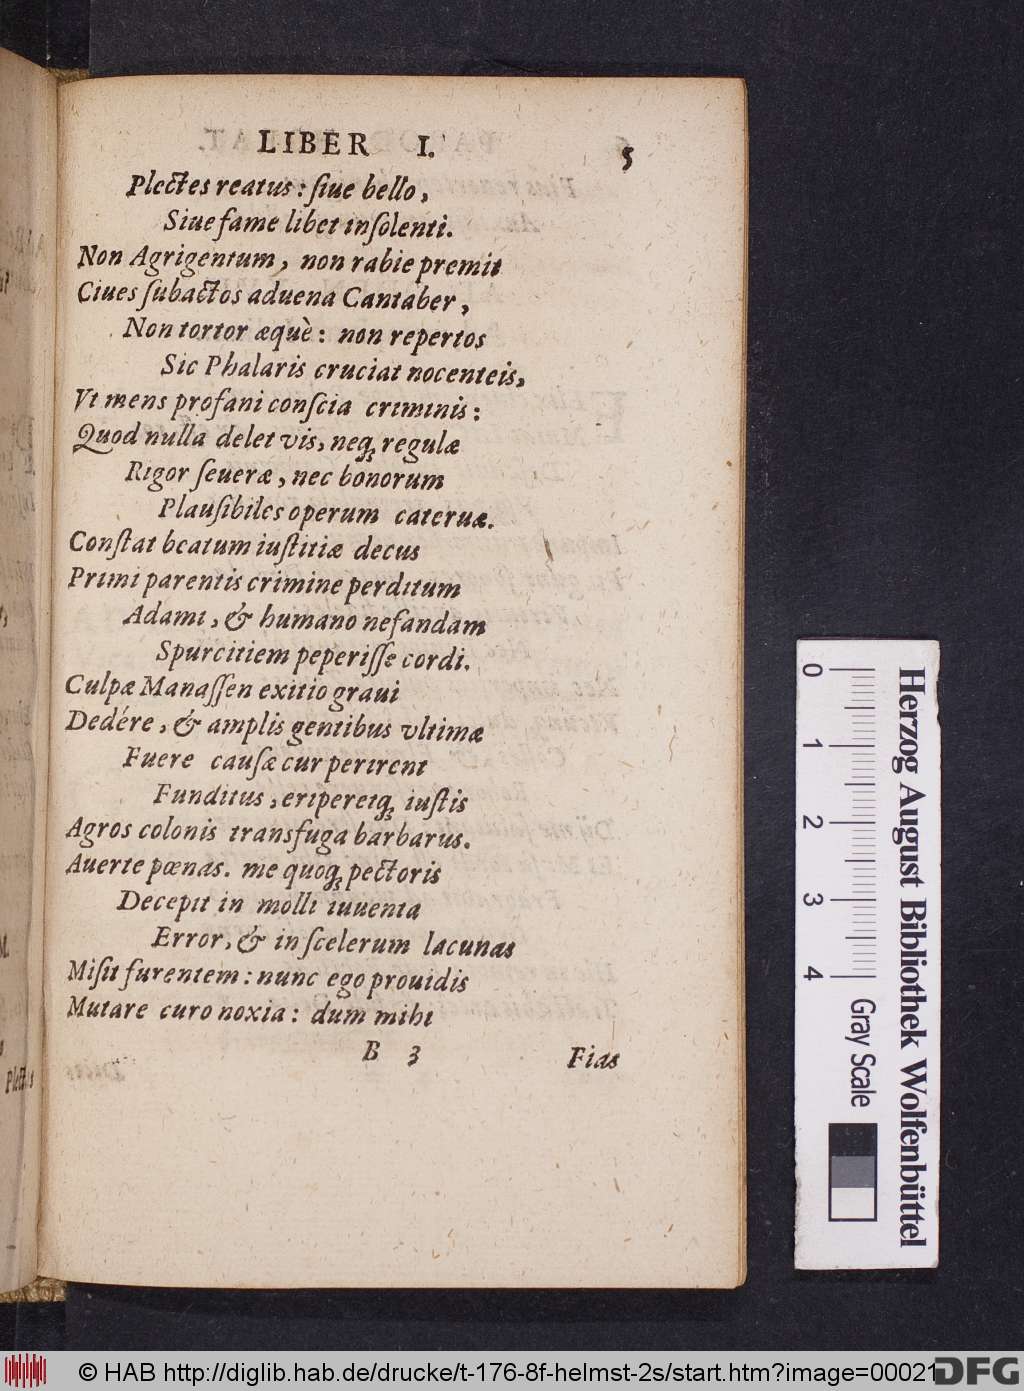 LIBER I. 5
Plectes reatus: ſiue bello,
Siue fame libet inſolenti.
Non Agrigentum, non rabie premit
Ciues ſubactos aduena Cantaber,
Non tortor æquè: non repertos
Sic Phalaris cruciat nocenteis,
Vt mens profani conſcia criminis:
Quod nulla delet vis, neq; regulæ
Rigor ſeueræ, nec bonorum
Plauſibiles operum cateruæ.
Conſtat beatum iuſtitiæ decus
Primi parentis crimine perditum
Adami, & humano nefandam
Spurcitiem peperiſſe cordi.
Culpæ Manaſſen exitio graui
Dedére, & amplis gentibus vltimæ
Fuere cauſæ cur perirent
Funditus, eriperetq; iuſtis
Agros colonis transfuga barbarus.
Auerte pœnas. me quoq; pectoris
Decepit in molli iuuenta
Error, & in ſcelerum lacunas
Miſit furentem: nunc ego prouidis
Mutare curo noxia: dum mihi
B 3 Fias
0 1 2 3 4
Gray Scale
Herzog August Bibliothek Wolfenbüttel
© HAB http://diglib.hab.de/drucke/t-176-8f-helmst-2s/start.htm?image=00021
DFG